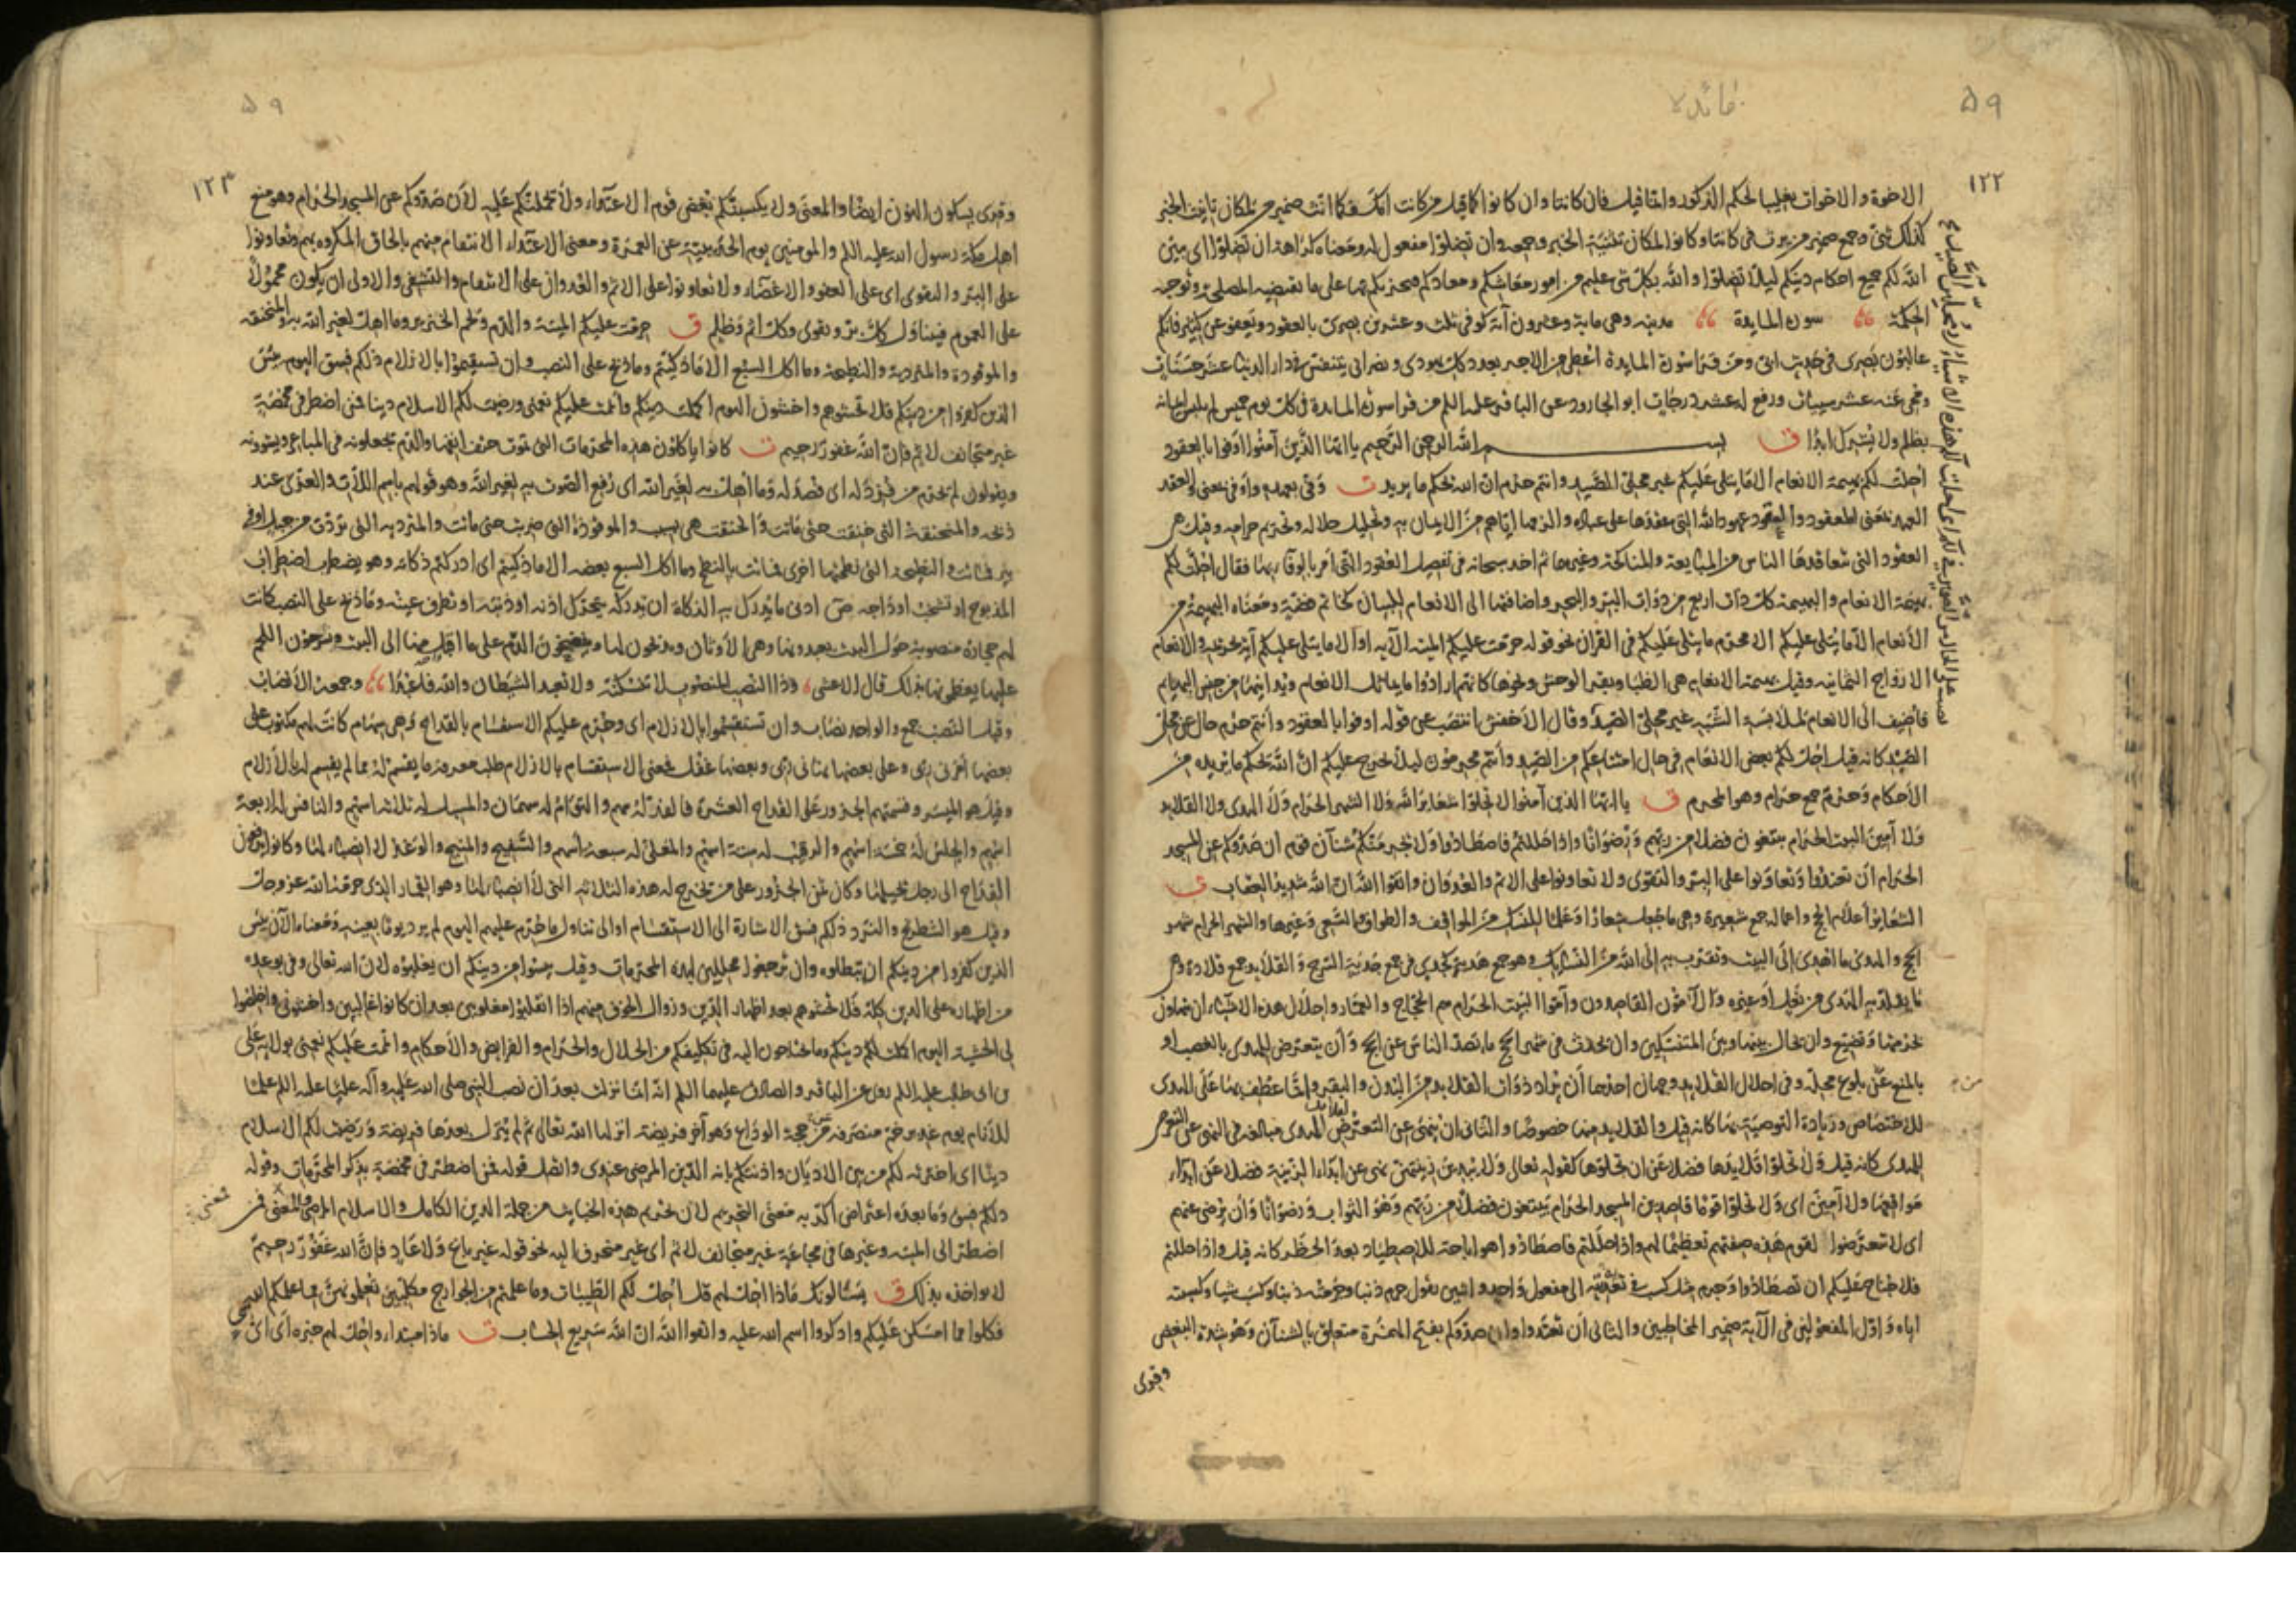 ٥٩
مائده
١٢٢
الاخوة والاخوات تغليبا لحكم الذكور واما قيل فان كانتا وان كانوا كما قيل من كانت امك فكما انث ضمير من لمكان تانيث الخبر
كذلك ثنى وجمع ضمير من يرث في كانتا وكانوا لمكان تثنية الخبر وجمعه وان تضلوا مفعول له ومعناه كراهة ان تضلوا اى يبين
الله لكم جميع احكام دينكم ليلا تضلوا والله بكل شى عليم من امور معاشكم ومعادكم فيخبركم بها على ما تقتضيه المصلحة وتوجبه
الحكمة سورة المايدة مدنية وهى ماية وعشرون آية كوفى ثلث وعشرون بصرى بالعقود ويعفو عن كثير فانكم
غالبون بصرى فى حديث ابى ومن قرا سورة المايدة اعطى من الاجر بعدد كل يهودى ونصرانى يتنفس فى دار الدنيا عشر حسنات
ومحى عنه عشر سيئات ورفع له عشر درجات ابو الجارود عن الباقر عليه السلم من قرا سورة المايدة فى كل يوم خميس لم يلبس ايمانه
بظلم ولا يشرك ابدا ق بسم الله الرحمن الرحيم يا ايها الذين آمنوا اوفوا بالعقود
احلت لكم بهيمة الانعام الا ما يتلى عليكم غير محلى الصيد وانتم حرم ان الله يحكم ما يريد ت وفى بعهده واوفى بمعنى والعقد
العهد بمعنى المعقود والعقود عهود الله التى عقدها على عباده والزمها اياهم من الايمان به وتحليل حلاله وتحريم حرامه وقيل هى
العقود التى يتعاقدها الناس من المبايعة والمناكحة وغيرهما ثم اخذ سبحانه فى تفصيل العقود التى امر بالوفا بها فقال احلت لكم
بهيمة الانعام والبهيمة كل ذات اربع من دواب البر والبحر واضافتها الى الانعام للبيان كخاتم فضة ومعناه البهيمة من
الانعام الا ما يتلى عليكم الا محرم ما يتلى عليكم فى القرآن نحو قوله حرمت عليكم الميتة الآية او الا ما يتلى عليكم آية تحريمه والانعام
الازواج الثمانية وقيل بهيمة الانعام هى الظبا وبقر الوحش ونحوها كانهم ارادوا ما يماثل الانعام ويدانيها من جنس البهايم
فاضيف الى الانعام لملابسة الشبه غير محلى الصيد وقال الاخفش انتصب عن قوله اوفوا بالعقود وانتم حرم حال عن محلى
الصيد كانه قيل احللنا لكم بعض الانعام فى حال امتناعكم من الصيد وانتم محرمون ليلا نحرج عليكم ان الله يحكم ما يريد من
الاحكام وحرم جمع حرام وهو المحرم ق يا ايها الذين آمنوا لا تحلوا شعاير الله ولا الشهر الحرام ولا الهدى ولا القلايد
ولا آمين البيت الحرام يبتغون فضلا من ربهم ورضوانا واذا حللتم فاصطادوا ولا يجرمنكم شنآن قوم ان صدوكم عن المسجد
الحرام ان تعتدوا وتعاونوا على البر والتقوى ولا تعاونوا على الاثم والعدوان واتقوا الله ان الله شديد العقاب ت
الشعاير اعلام الحج واعماله جمع شعيرة وهى ما جعل شعارا وعلما للنسك من المواقف والطواف والسعى وغيرها والشهر الحرام شهر
الحج والهدى ما اهدى الى البيت وتقرب به الى الله من النسايك وهو جمع هدية كجدى فى جمع جدية السرج والقلايد جمع قلادة وهى
ما يقلد به الهدى من نعل او غيره والآمون القاصدون وآموا البيت الحرام هم الحجاج والعمار واحلال هذه الاشياء ان يتهاون
بحرمتها وتضيع وان يحال بينها وبين المتنسكين وان يحدث فى شهر الحج ما يصد الناس عن الحج وان يتعرض للهدى بالغصب او
بالمنع عن بلوغ محله وفى احلال القلايد وجهان احدهما ان يراد ذوات القلايد من البدن والبقر وانما عطف بها على الهدى
للاختصاص وزيادة التوصية بها كانه قيل والقلايد منها خصوصا والثانى ان ينهى عن التعرض لقلائد الهدى مبالغة فى النهى عن التعرض
للهدى كانه قيل ولا تحلوا قلايدها فضلا عن ان تحلوها كقوله تعالى ولا يبدين زينتهن نهى عن ابداء الزينة فضلا عن ابداء
مواقعها ولا آمين اى ولا تحلوا قوما قاصدين المسجد الحرام يبتغون فضلا من ربهم وهو الثواب ورضوانا وان يرضى عنهم
اى لا تتعرضوا لقوم هذه صفتهم تعظيما لهم واذا حللتم فاصطادوا هو اباحة للاصطياد بعد الحظر كانه قيل واذا حللتم
فلا جناح عليكم ان تصطادوا وجرم مثل كسب فى تعديته الى مفعول واحد واثنين تقول جرم ذنبا وجرمته ذنبا وكسب شيا وكسبته
اياه واول المفعولين فى الآية ضمير المخاطبين والثانى ان تعتدوا وان صدوكم بفتح الهمزة متعلق بالشنآن وهو شدة البغض
وقرئ
٥٩
١٢٣
وقرى بسكون النون ايضا والمعنى ولا يكسبنكم بغض قوم الاعتداء ولا يحملنكم عليه لان صدوكم عن المسجد الحرام وهو منع
اهل مكة رسول الله عليه السلم والمومنين يوم الحديبية عن العمرة ومعنى الاعتداء الانتقام منهم بالحاق المكروه بهم وتعاونوا
على البر والتقوى اى على العفو والاغضاء ولا تعاونوا على الاثم والعدوان على الانتقام والتشفى والاولى ان يكون محمولا
على العموم فيتناول كل بر وتقوى وكل اثم وظلم ق حرمت عليكم الميتة والدم ولحم الخنزير وما اهل لغير الله به والمنخنقة
والموقوذة والمتردية والنطيحة وما اكل السبع الا ما ذكيتم وما ذبح على النصب وان تستقسموا بالازلام ذلكم فسق اليوم يئس
الذين كفروا من دينكم فلا تخشوهم واخشون اليوم اكملت دينكم واتممت عليكم نعمتى ورضيت لكم الاسلام دينا فمن اضطر فى مخمصة
غير متجانف لاثم فان الله غفور رحيم ت كانوا ياكلون هذه المحرمات التى تموت حتف انفها والدم يجعلونه فى المباعر ويشوونه
ويقولون لم يحرم من فزد له اى فصد له وما اهل به لغير الله اى رفع الصوت به لغير الله وهو قولهم باسم اللات والعزى عند
ذبحه والمنخنقة التى خنقت حتى ماتت وانخنقت هى بسبب والموقوذة التى ضربت حتى ماتت والمتردية التى تردت من جبل او فى
بئر فماتت والنطيحة التى نطحتها اخرى فماتت بالنطح وما اكل السبع بعضه الا ما ذكيتم اى ادركتم ذكاته وهو يضطرب اضطراب
المذبوح او تشخب اوداجه ص ادنى ما يدرك به الذكاة ان يدركه يتحرك اذنه او ذنبه او تطرف عينه وما ذبح على النصب كانت
لهم حجارة منصوبة حول البيت يعبدونها وهى الاوثان ويذبحون لها وينضحون الدم على ما اقبل منها الى البيت ويشرحون اللحم
عليها يعظمونها بذلك قال الاعشى وذا النصب المنصوب لا تنسكنه ولا تعبد الشيطان والله فاعبدا وجمعه الانصاب
وقيل النصب جمع والواحد نصاب وان تستقسموا بالازلام اى وحرم عليكم الاستقسام بالقداح وهى سهام كانت لهم مكتوب على
بعضها امرنى ربى وعلى بعضها نهانى ربى وبعضها غفل فمعنى الاستقسام بالازلام طلب معرفة ما يقسم له مما لم يقسم له بالازلام
وقيل هو الميسر وقسمتهم الجزور على القداح العشرة فالفذ له سهم والتوام له سهمان والمسبل له ثلاثة اسهم والنافس له اربعة
اسهم والحلس له خمسة اسهم والرقيب له ستة اسهم والمعلى له سبعة اسهم والسفيح والمنيح والوغد لا انصباء لها وكانوا يدفعون
القداح الى رجل يجيلها وكان ثمن الجزور على من تخرج له هذه الثلاثة التى لا انصباء لها وهو القمار الذى حرمه الله عز وجل
وقيل هو الشطرنج والنرد ذلكم فسق الاشارة الى الاستقسام او الى تناول ما حرم عليهم اليوم لم يرد يوما بعينه ومعناه الآن يئس
الذين كفروا من دينكم ان يبطلوه وان ترجعوا محللين لهذه المحرمات وقيل يئسوا من دينكم ان يغلبوه لان الله تعالى وفى بوعده
من اظهاره على الدين كله فلا تخشوهم بعد اظهار الدين وزوال الخوف منهم اذا انقلبوا مغلوبين بعد ان كانوا غالبين واخشونى واخلصوا
لى الخشية اليوم اكملت لكم دينكم وما تحتاجون اليه فى تكليفكم من الحلال والحرام والفرايض والاحكام واتممت عليكم نعمتى بولاية على
بن ابى طالب عليه السلم روى عن الباقر والصادق عليهما السلم انه انما نزلت بعد ان نصب النبى صلى الله عليه وآله عليا عليه السلم علما
للانام يوم غدير خم منصرفه عن حجة الوداع وهو آخر فريضة انزلها الله تعالى ثم لم ينزل بعدها فريضة ورضيت لكم الاسلام
دينا اى اخترته لكم من بين الاديان واذنتكم بانه الدين المرضى عندى واتصل قوله فمن اضطر فى مخمصة بذكر المحرمات وقوله
ذلكم فسق وما بعده اعتراض اكد به معنى التحريم لان تحريم هذه الخبايث من جملة الدين الكامل والاسلام المرضى والمعنى فمن
اضطر الى الميتة وغيرها فى مجاعة غير متجانف لاثم اى غير منحرف اليه نحو قوله غير باغ ولا عاد فان الله غفور رحيم
لا يواخذه بذلك ق يسالونك ماذا احل لهم قل احل لكم الطيبات وما علمتم من الجوارح مكلبين تعلمونهن مما علمكم الله
فكلوا مما امسكن عليكم واذكروا اسم الله عليه واتقوا الله ان الله سريع الحساب ت ماذا مبتداء واحل لهم خبره اى اى شى